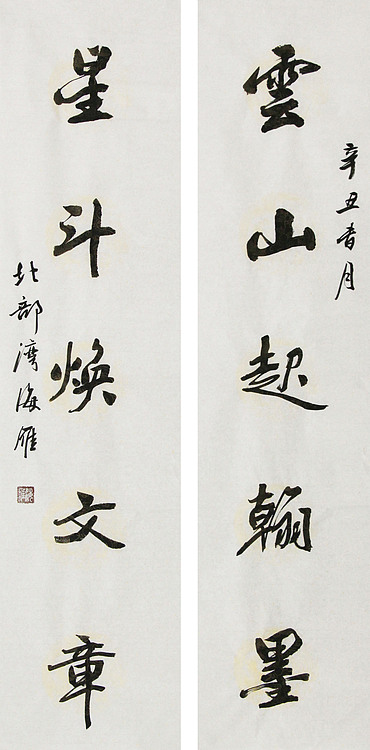 雲山起翰墨
辛丑春月
星斗焕文章
北部湾海雁